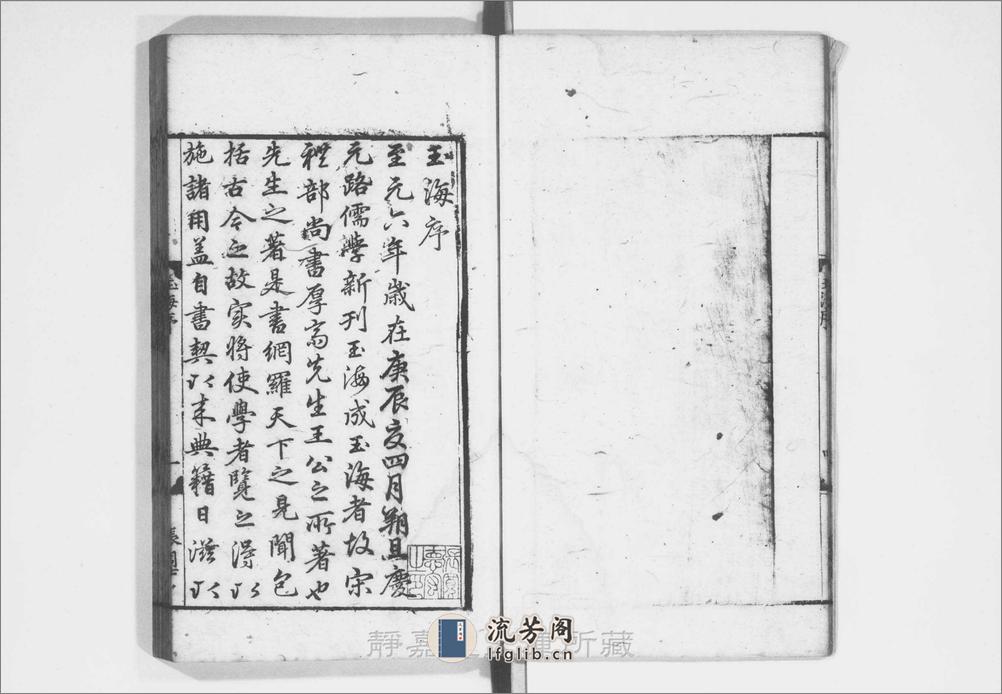 玉海序
至元六年歲在庚辰夏四月朔旦慶
元路儒學新刊玉海成玉海者故宋
禮部尚書厚齋先生王公之所著也
先生之著是書網羅天下之見聞包
括古今之故實將使學者覽之得以
施諸用盖自書契以来典籍日滋以
玉海序
一
玉海序
靜嘉 所藏
流芳阁
lfglib.cn